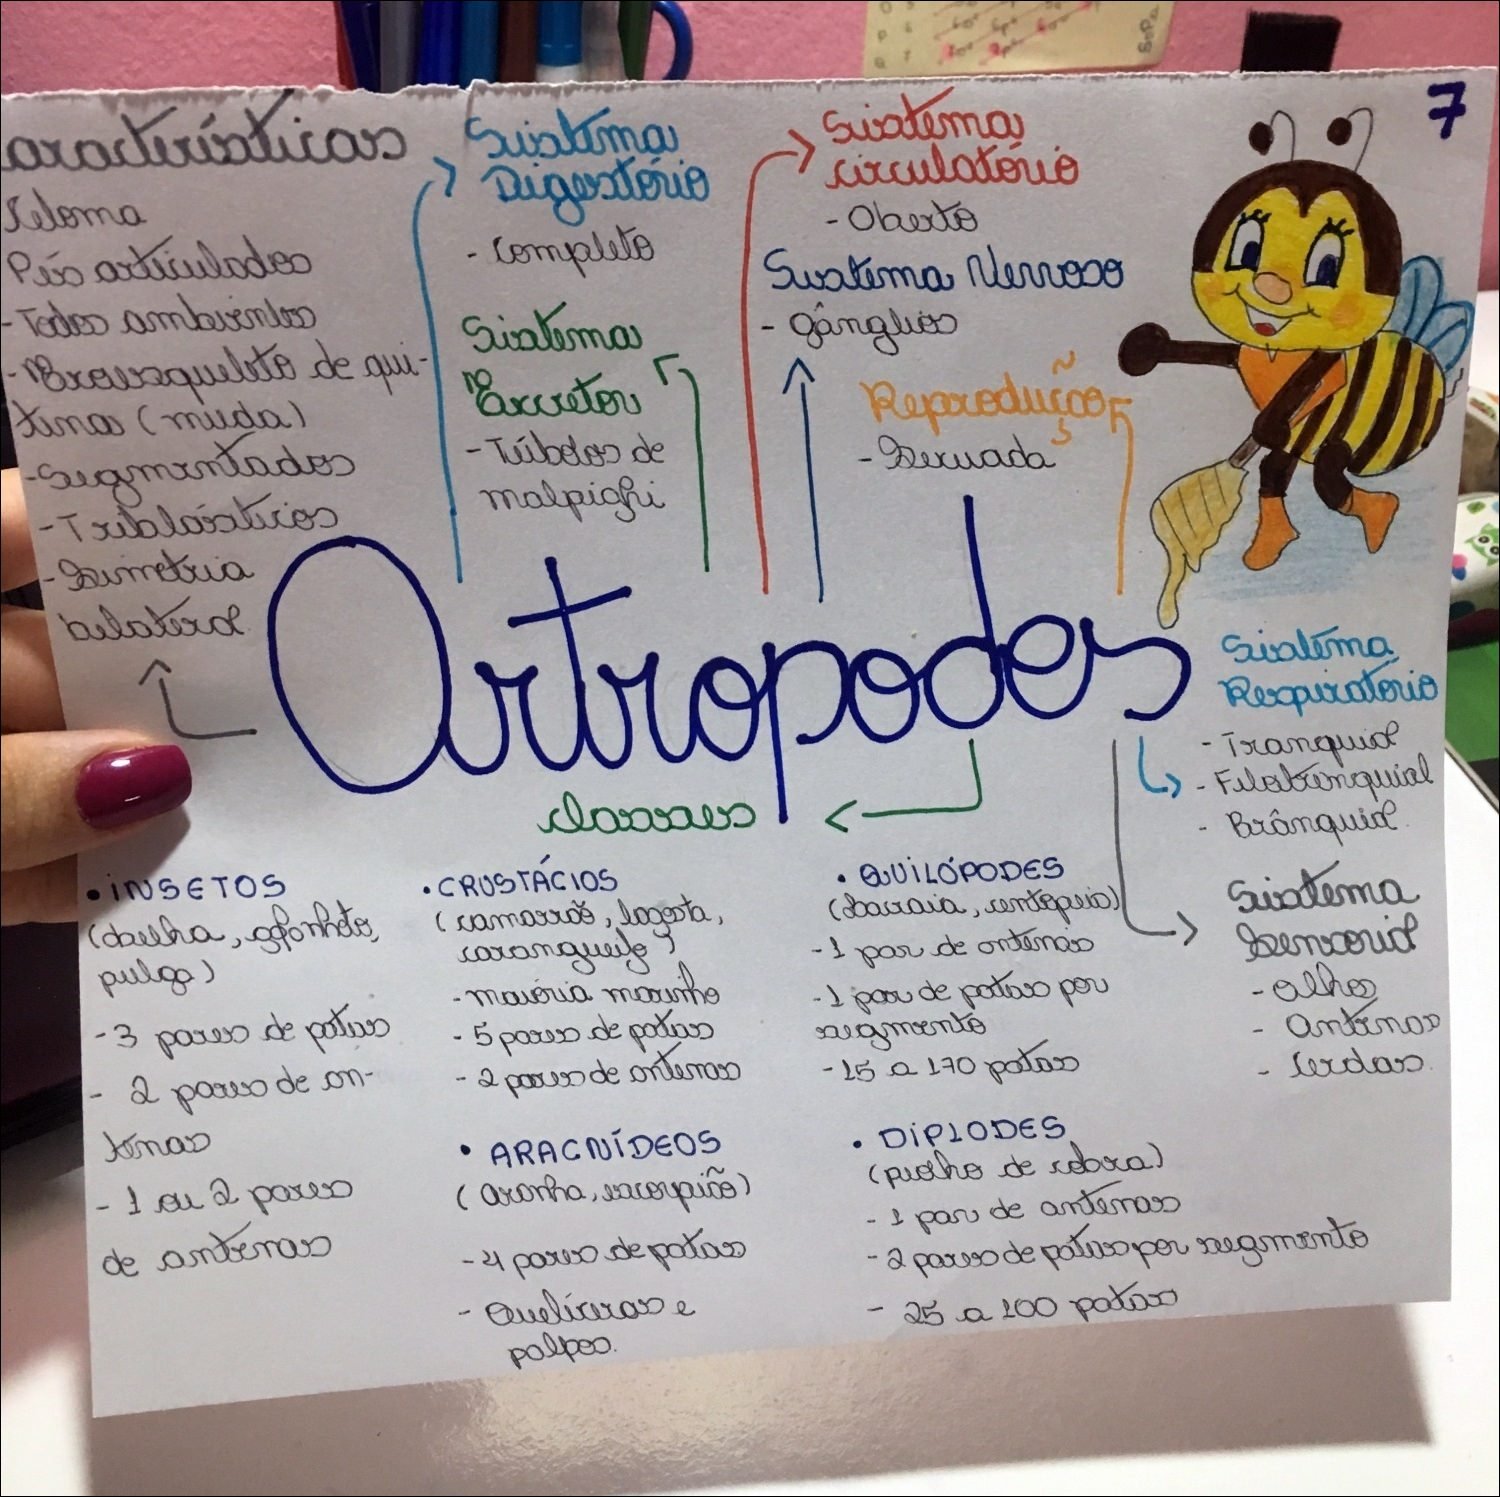 aracterísticas
Celoma
Pés articulados
- Todos ambientes
- Exoesqueleto de qui-
tina (muda)
- Segmentados
- Triblásticos
- Simetria
bilateral
Sistema
Digestório
- Completo
Sistema
Excretor
- Túbulos de
malpighi
Sistema
circulatório
- Aberto
Sistema Nervoso
- gânglios
Reprodução
- Sexuada
7
Artrópodes
Sistema
Respiratório
- Traqueal
- Filotraqueal
- Branquial
Sistema
Sensorial
- Olhos
- Antenas
- Cerdas
classes
• INSETOS
(abelha, gafanhoto,
pulga)
- 3 pares de patas
- 2 pares de an-
tenas
- 1 ou 2 pares
de antenas
• CRUSTÁCIOS
(camarão, lagosta,
caranguejo)
- maioria marinho
- 5 pares de patas
- 2 pares de antenas
• ARACNÍDEOS
(aranha, escorpião)
- 4 pares de patas
- Quelíceras e
palpos.
• QUILÓPODES
(lacraia, centopeia)
- 1 par de antenas
- 1 par de patas por
segmento
- 15 a 170 patas
• DIPLODES
(piolho de cobra)
- 1 par de antenas
- 2 pares de patas por segmento
- 25 a 100 patas